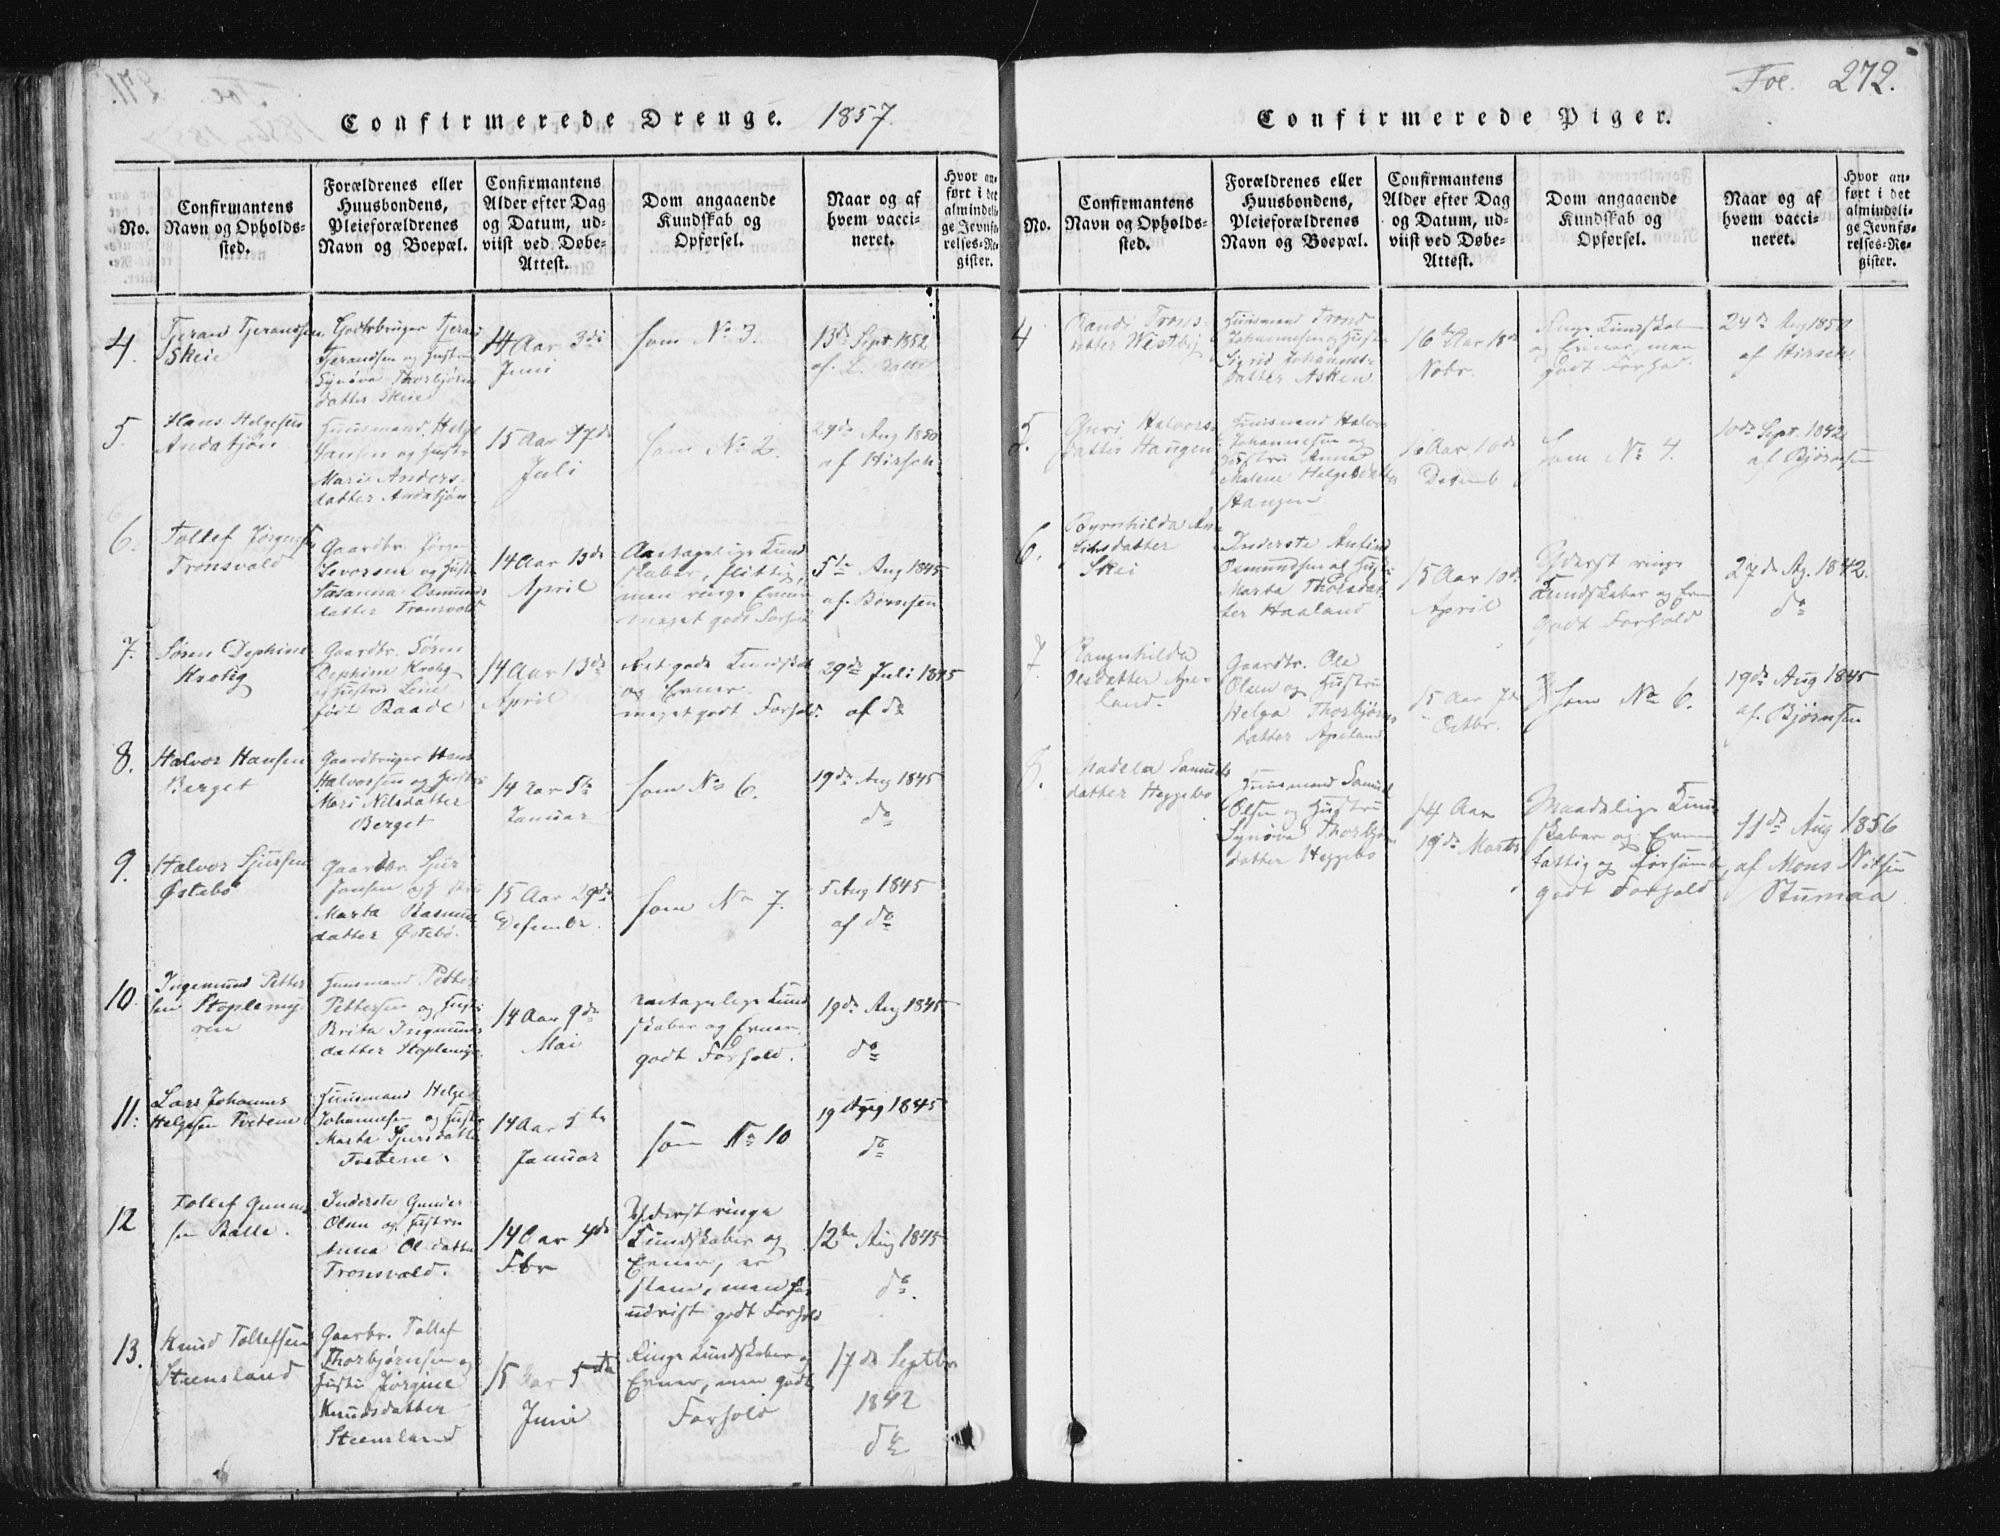 Confirmerede Drenge. 1857.
No.
Confirmantens
Navn og Opholds-
sted.
Forældrenes eller
Huusbondens,
Pleieforældrenes
Navn og Boepæl.
Confirmantens
Alder efter Dag
og Datum, ud-
viist ved Døbe-
Attest.
Dom angaaende
Kundskab og
Opførsel.
Naar og af
hvem vacci-
neret.
Hvor an-
ført i det
almindeli-
ge Jevnfø-
relses-Re-
gister.
4.
Tjerand Tjerandsen
Skeie
Gaardbruger Tjerand
Tjerandsen og Hustru
Synøva Thorbjørns
datter Skeie
14 Aar 3de
Juni
som No 3.
13de Sept. 1852
af
5.
Hans Helgesen
Andatjøn
Huusmand Helge
Hansen og Hustru
Mari Anders-
datter Andatjøn
15 Aar 17de
Juli
som No 2.
24de Aug 1850
af Hirsch
6.
Tollef Jørgens
Tronsvold
Gaardbr. Jørgen
Levorsen og Hustru
Susanna Osmunds
datter Tronsvold
14 Aar 13de
April
Antagelige Kund
skaber, flittig,
men ringe Evner
meget godt Forhold
5te Aug 1845
af Børnsen
7.
Søren Dephine
Krohg
Gaardbr. Søren
Dephine Krohg
og Hustru Leine
født Baade
14 Aar 13de
April
Ret gode Kundskab
og Evner.
meget godt Forhold.
29de Juli 1845
af do
8.
Halvor Hansen
Berget
Gaardbruger Hans
Halvorsen og Hustru
Mari Nilsdatter
Berget
14 Aar 5te
Januar
som No 6.
19de Aug 1845
do
9.
Halvor Sjursen
Østebø
Gaardbr. Sjur
Jansen og
Marta Rasmus
datter Østebø.
15 Aar 29de
Desembr.
som No 7.
5 Aug 1845
af do
10.
Ingemund Petter
sen Stoplemy-
ren
Huusmand Petter
Pettersen og Hustru
Brita Ingmunds
datter Stoplemyr
14 Aar 9de
Mai
antagelige Kund
skaber og Evner.
godt Forhold.
19de Aug 1845
do
11.
Lars Johannes
Helgesen Tvetene
Huusmand Helge
Johannesen og Hustru
Marta Sjursdatter
Tvetene.
14 Aar 5te
Januar
som No 10
19 Aug 1845
do
12
Tollef Gunder
sen Ralle.
Inderste Gunder
Olsen og Hustru
Anna Olsdatter
Tronsvold.
14 Aar 4de
Fbr
Yderst ringe
Kundskaber og
Evner, er
men for
udvist godt Forhold
12te Aug 1845
do.
13.
Knud Tollefsen
Steensland
Gaarbr. Tollef
Thorbjørnsen og
Hustru Jørgine
Knudsdatter
Steensland
15 Aar 5te
Juni
Ringe Kundskaber og
Evner, men godt
Forhold
17de Septbr
1842
do
Foe. 272.
Confirmerede Piger.
No.
Confirmantens
Navn og Opholds-
sted.
Forældrenes eller
Huusbondens,
Pleieforældrenes
Navn og Boepæl.
Confirmantens
Alder efter Dag
og Datum, ud-
viist ved Døbe-
Attest.
Dom angaaende
Kundskab og
Opførsel.
Naar og af
hvem vacci-
neret.
Hvor an-
ført i det
almindeli-
ge Jevnfø-
relses-Re-
gister.
4
Randi Trons-
datter Westby
Huusmand Trond
Johannesen og Hustru
Sigrid Johannes-
datter Asken
16 Aar 18de
Nobr.
Ringe Kundskaber
og Evner, men
godt Forhold.
24de Aug 1850
af Hirsch
5.
Guri Halvors-
datter Haugen
Huusmand Halvor
Johannesen og
Hustru Anne
Malene Helgesdatter
Haugen
16 Aar 10de
Decemb
som No 4.
10de Sept. 1842
af Bjørnsen
6.
Byrnhilda An-
sihsdatter
Skei
Inderste
Osmundsen og Hustru
Marta Thorsdat-
ter Haaland
15 Aar 10de
April
Yderst ringe
Kundskaber og Evner
godt Forhold
27de Ag. 1842.
do
7
Rangnhilda
Olsdatter Ape-
land.
Gaardbr. Ole
Olsen og Hustru
Helga Thorbjørns
datter Apeland
15 Aar 7de
Octbr.
som No 6.
19de Aug 1845
af. Bjørnsen
8.
Madela Samuels
datter Heggebø
Huusmand Samuel
Olsen og Hustru
Synøva Thorbjørns
datter Heggebø
14 Aar
19de Marts
Maadelige Kund
skaber og Evner,
fattig og forsømt
godt Forhold
11de Aug 1856
af Mons Nilsen
Stumaa